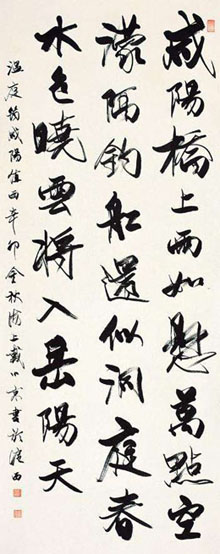 咸陽橋上雨如懸萬點空
濛隔釣船還似洞庭春
水色曉雲將入岳陽天
溫庭筠咸陽值雨辛卯金秋海上戴小京書於滬西